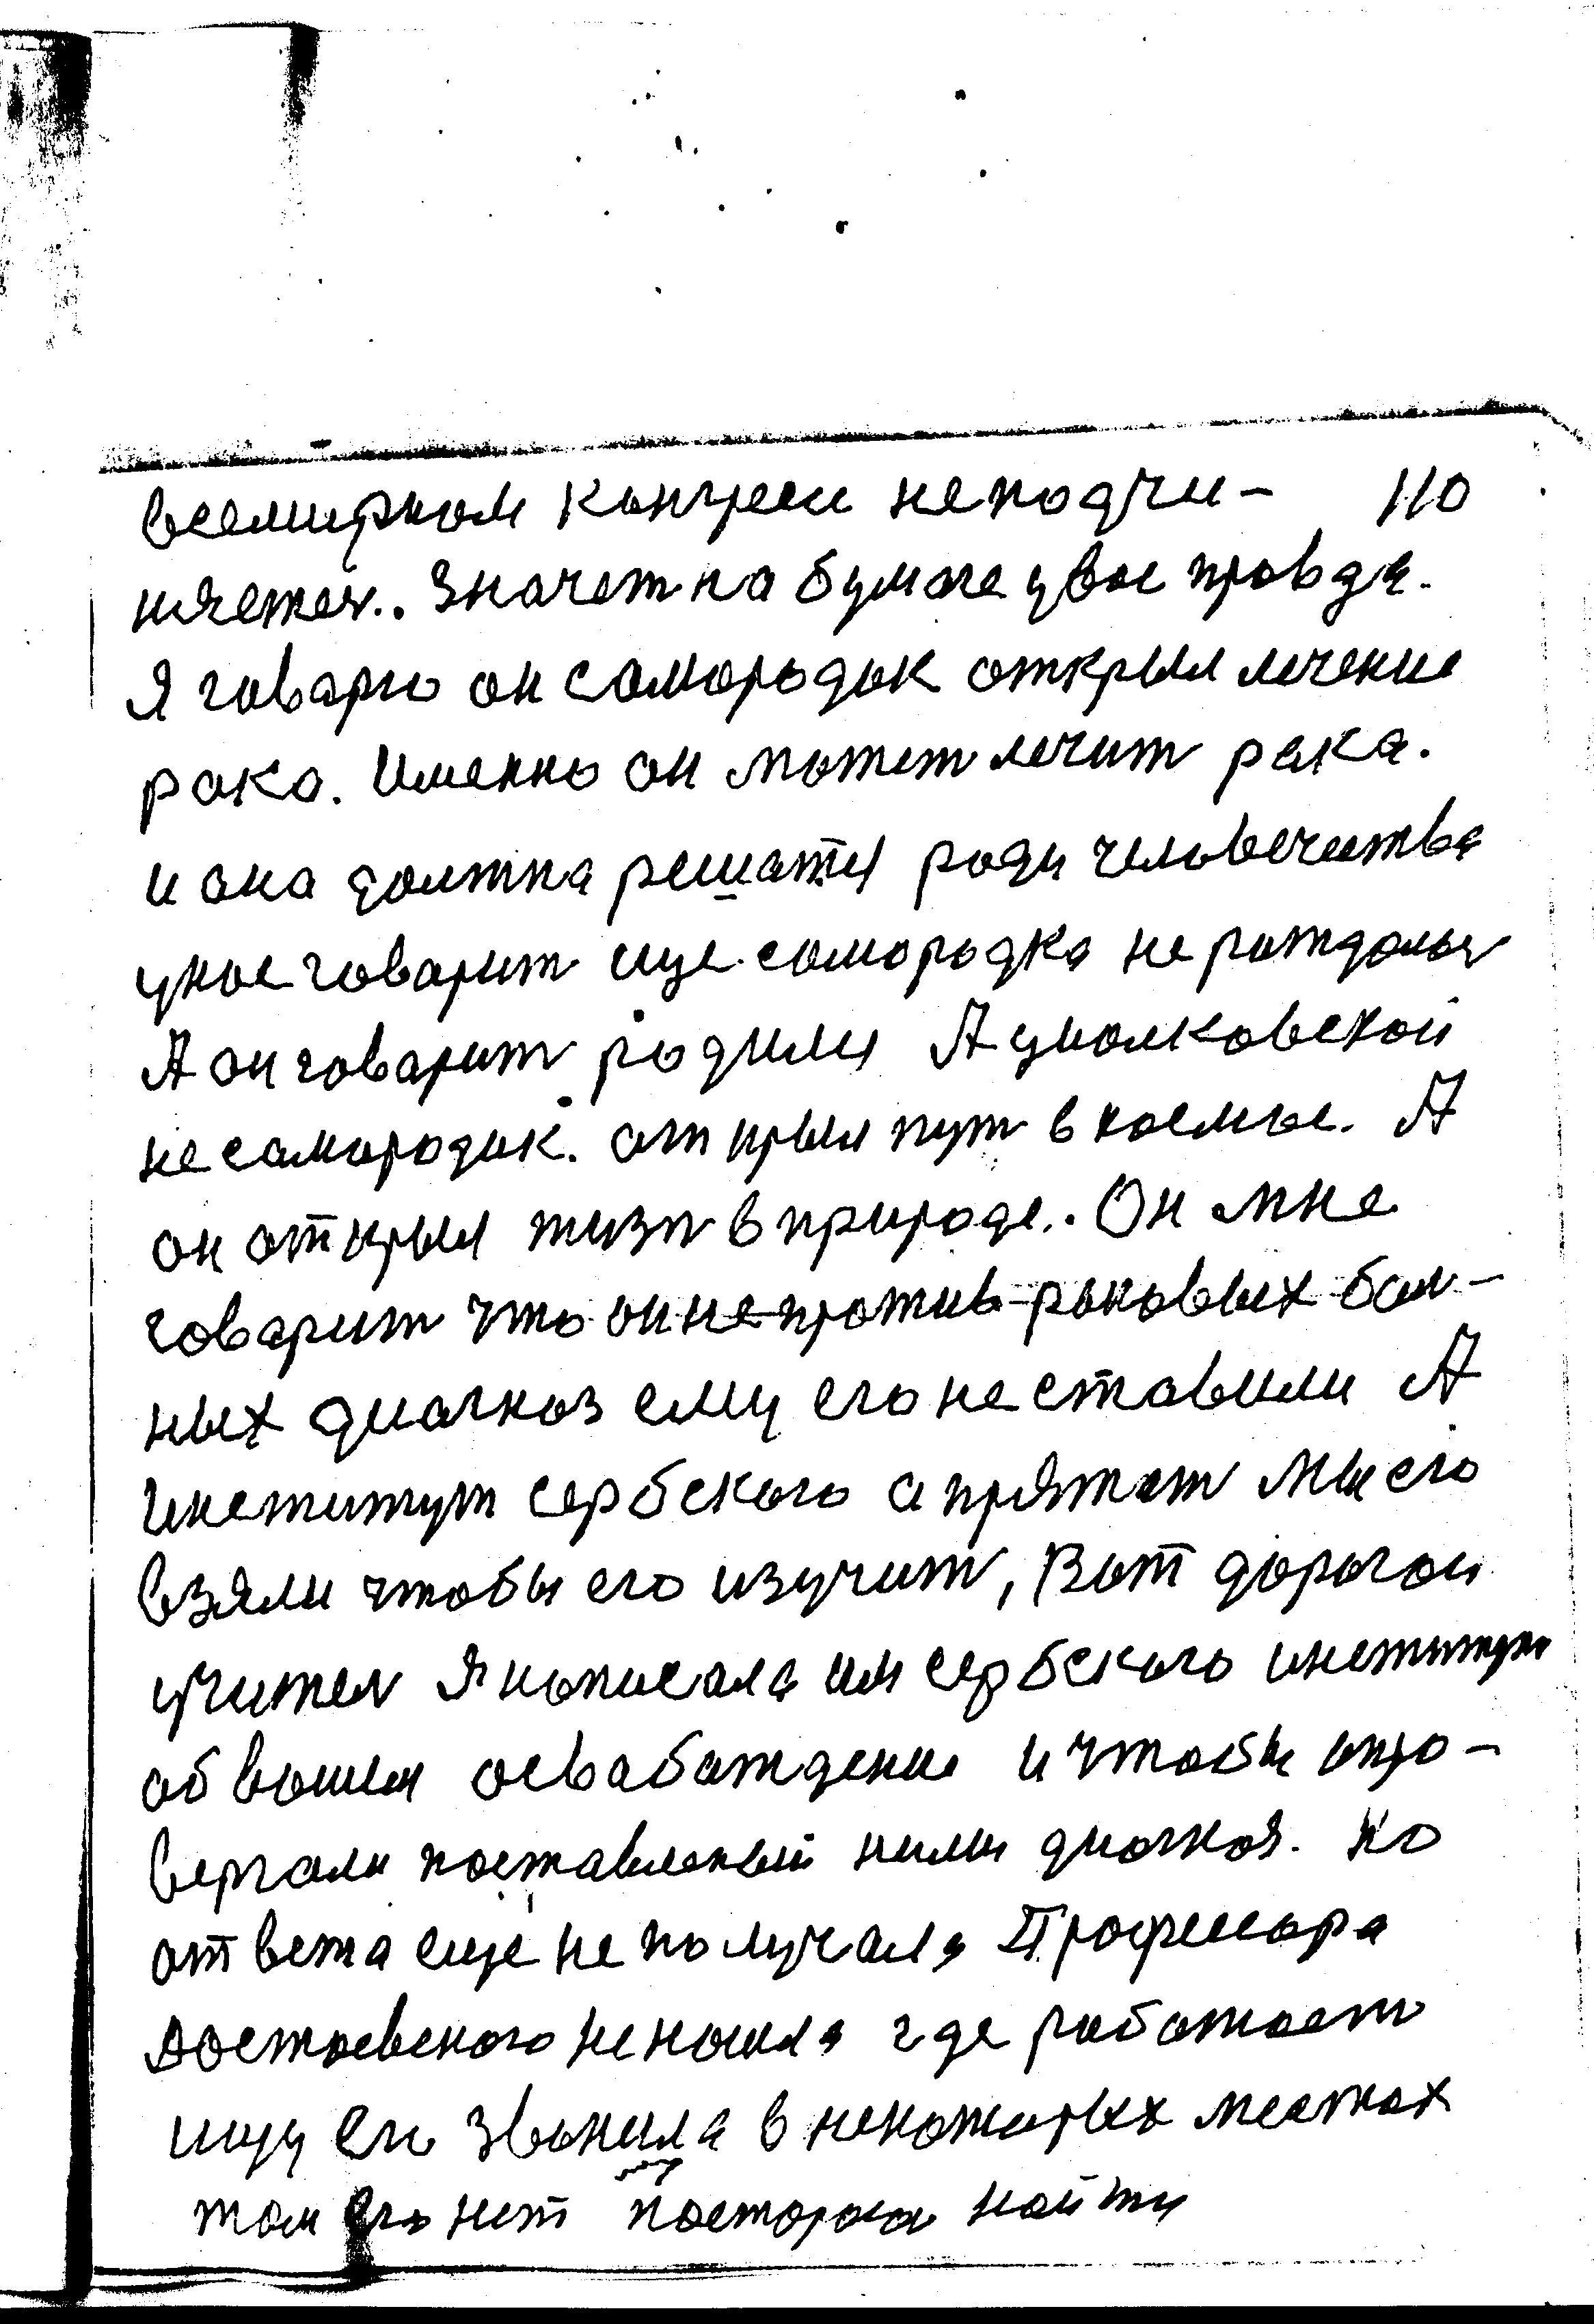 всемирном конгресе неподчи- 110
няется.. Значет на бумаге увас правда.
Я говарю он самородок открыл лечение
рака. Именно он можетм лечит рака.
и она должна решатся ради человечества
унас говарит еще самородка не рождалься
А он говарит родился А циолковской
не самородик. открыл пут в космос. А
он открыл жизн в природе.. Он мне
говарит что он не против раковых бол-
ных диагноз ему его не ставили А
Институт сербского а прятат мы его
взяли чтобы его изучит, Вот дорогой
учител Я написала им сербского институт
об вашем освабаждение и чтобы опро-
вергали поставленый ними диагноз. Но
ответа еще не получала Профессора
Достоевского не нашла где работает
ищу его Звонила в некоторых местах
там его нет постораюсь найти